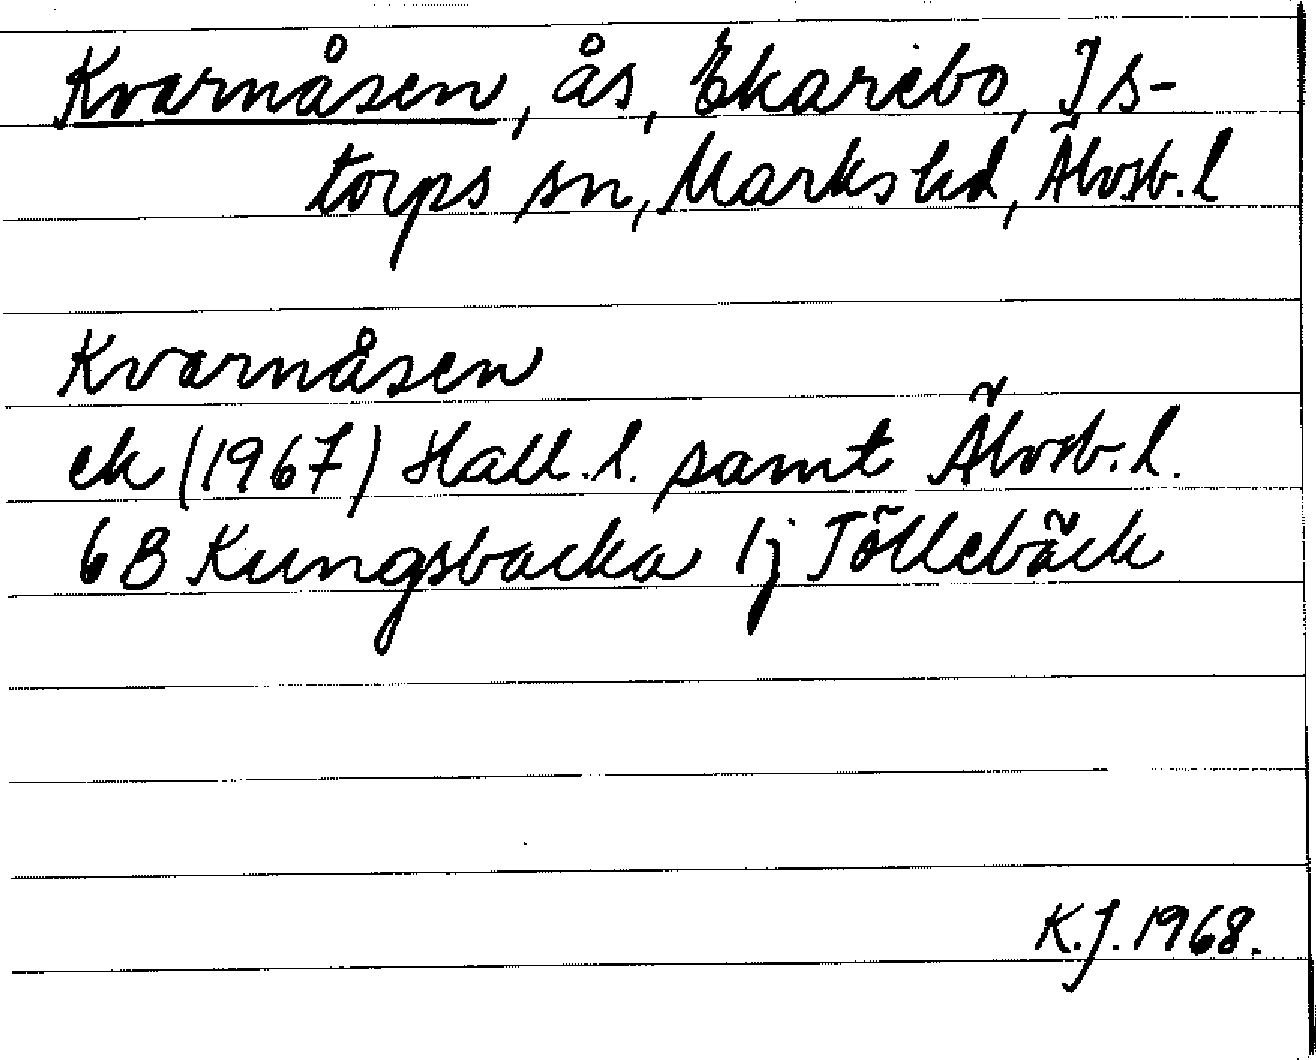 Kvarnåsen, ås, Ekarebo, Is-
torps sn, Marks hd, Älvsb. l
Kvarnåsen
ek (1967) Hall. l. samt Älvsb. l.
6B Kungsbacka 1j Töllebäck
K.J. 1968.